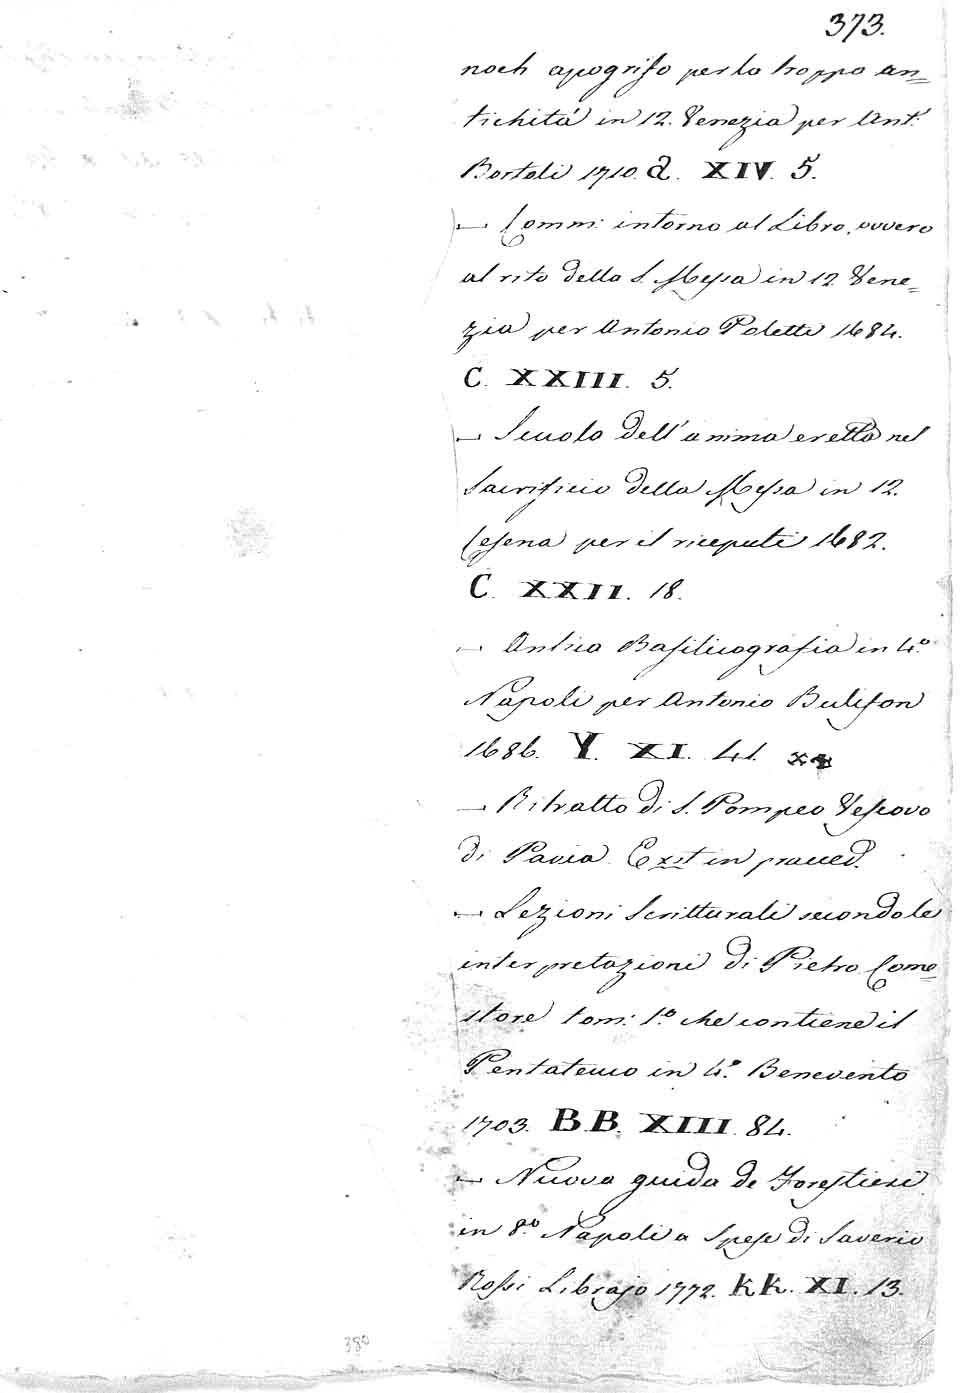 373.
noch apogrifo per la troppo an=
tichità in 12. Venezia per Ant:
Bortoli 1710. a. XIV. 5.
— Comm: intorno al Libro, ovvero
al rito della S. Messa in 12. Vene=
zia per Antonio Poletti 1684.
C. XXIII. 5.
— Scuola dell'anima eretta nel
Sacrificio della Messa in 12.
Cesena per il riceputi 1682.
C. XXII. 18.
— Antica Basilicografia in 4.o
Napoli per Antonio Bulifon
1686. Y. XI. 41.
— Ritratto di S. Pompeo Vescovo
di Pavia. Exst in praeced.
— Lezioni Scritturali secondo le
interpretazioni di Pietro Come=
store tom: 1.o che contiene il
Pentateuco in 4.o Benevento
1703. B.B. XIII. 84.
— Nuova guida de Forestieri
in 8.o Napoli a Spese di Saverio
Rossi Librajo 1772. KK. XI. 13.
380